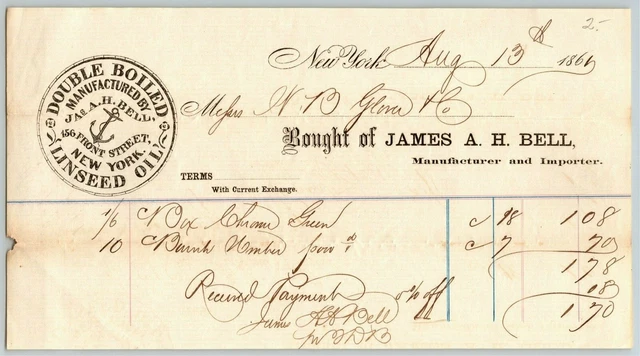 2-
New York Aug 13th 1866
Messrs W. B Glover & Co
Bought of JAMES A. H. BELL,
Manufacturer and Importer.
DOUBLE BOILED
MANUFACTURED BY
JAs A. H. BELL,
156 FRONT STREET,
NEW YORK.
LINSEED OIL
TERMS
With Current Exchange.
1/6 Box Chrome Green c 18 108
10 Burnt Umber powd c 7 70
178
08
Received Payment off 170
James A H Bell